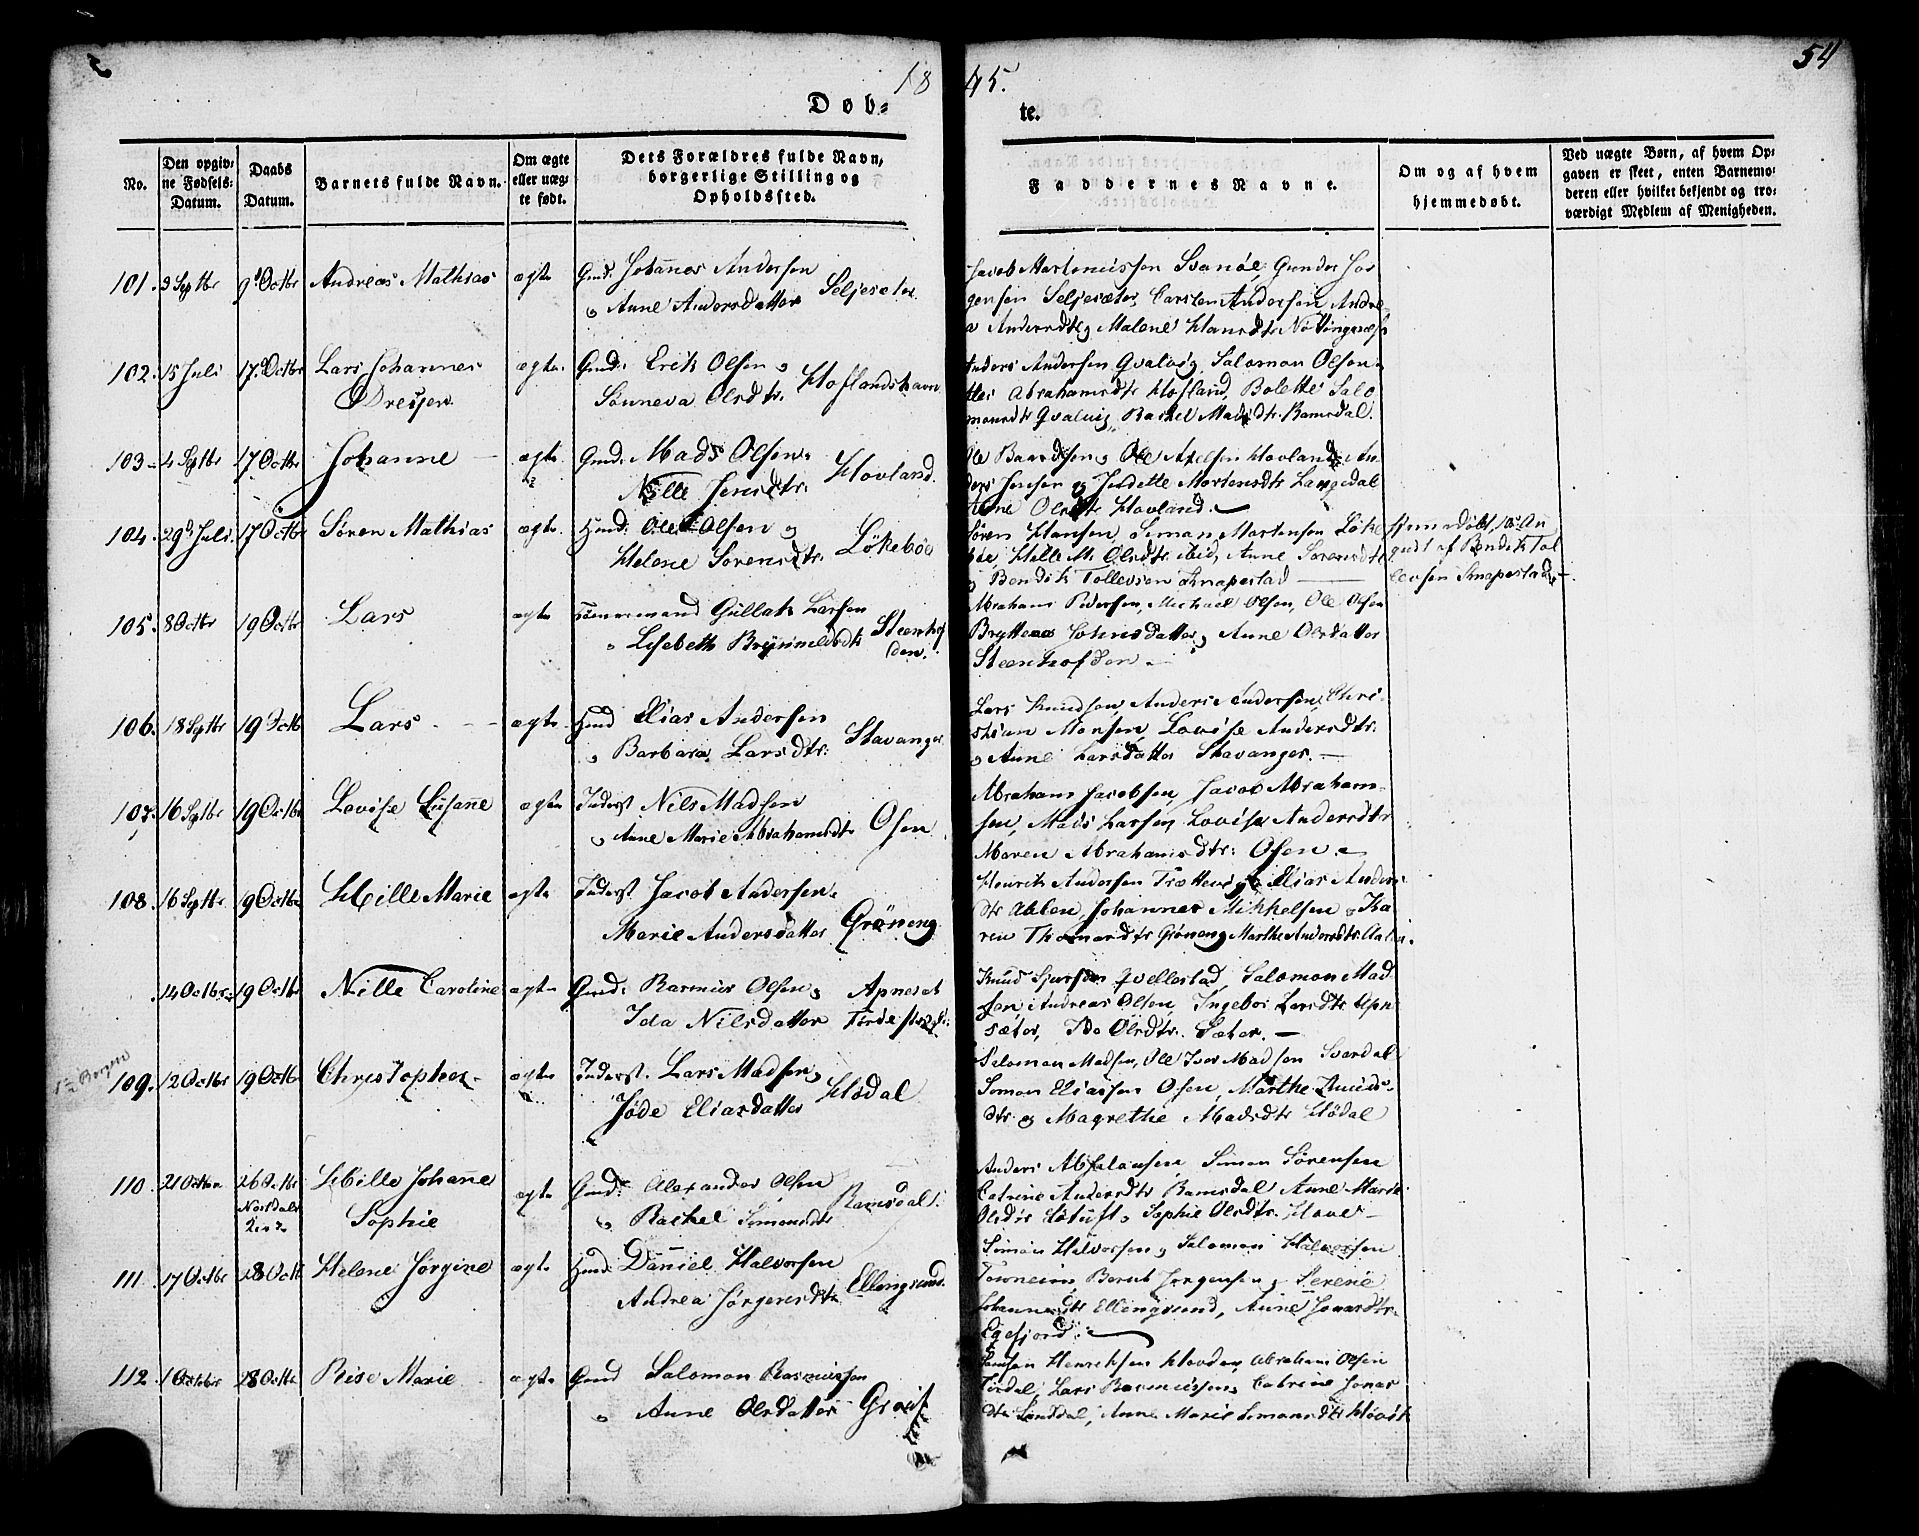 18 45.
54
Døb-
te.
No.
Den opgiv-
ne Fødsels-
Datum.
Daabs
Datum.
Barnets fulde Navn.
Om ægte
eller uæg-
te født.
Dets Forældres fulde Navn,
borgerlige Stilling og
Opholdssted.
Faddernes Navne.
Om og af hvem
hjemmedøbt.
Ved uægte Børn, af hvem Op-
gaven er skeet, enten Barnemo-
deren eller hvilket bekjendt og tro-
værdigt Medlem af Menigheden.
101. 9 Septbr Octbr Andreas Mathias ægte Gmd. Johannes Andersen
& Anne Andersdatter Seljesæter
Jacob Martinussen Svanøe, Gunder Jør
gensen Seljesæter, Carsten Andersen, Andre
a Andersdtr, Malene Hansdtr
102. 15 Juli 17 Octbr Lars Johannes ægte Gmd: Erik Olsen &
Dreyer Sønneva Olsdtr. Hoflandshavn
Anders Andersen Qvalvig, Salomon Olsen
Abrahamsdtr Hofland, Bolette Salo
monsdtr Qvalvig, Rachel Madsdtr. Ramsdal.
103 4 Septbr 17 Octbr Johanne ægte Gmd: Mads Olsen
Nille Jensdtr. Hovland.
Ole Ole Axelsen Hovland, An
ders Jensen og Mortensdtr Langedal
Anne Olsdtr Hovland.
104. 29 Juli 17 Octbr Søren Mathias ægte Hmd: Ole Olsen &
Helene Sørensdtr. Løkebøe
Søren Hansen, Simon Martensen Løke
bøe, Helle M. Olsdtr ibid, Anne Sørensdtr
& Bendik Tollevsen Knapestad
hjemmedøbt 10 Au
gust af Bendik Tol
levsen Knapestad
105. 8 Octbr 19 Octbr Lars ægte Tømmermand Gullak Larsen
& Lisebeth Steenhof
den.
Abraham Pedersen, Michael Olsen, Ole Olsen
Johnsdatter, Anne Olsdatter
Steenhofden
106. 18 Septbr 19 Octb Lars ægte Hmd Elias Andersen
& Barbara Larsdtr: Stavanger
Lars Knudsen, Anders Andersen, Chri-
stian Monsen, Lovise Andersdtr:
& Anne Larsdatter Stavanger.
107. 16 Septbr 19 Octbr Lovise Susanne ægte Inderst Nils Madsen
& Anne Marie Abrahamsdtr Osen
Abraham Jacobsen, Jacob Abraham-
sen, Mads Larsen, Lovise Andersdtr
Maren Abrahamsdtr: Osen.
108. 16 Septbr. 19 Octbr. Hille Marie ægte Inderst Jacob Andersen
Marie Andersdatter Grøneng
Henrik Andersen Elias Anders
Aalen, Johannes Mikkelsen & Ka
ren Thomasdtr Grøneng, Marthe Andersdtr. Aalen.
14 Octbr. 19 Octbr Nille Caroline ægte Gmd: Rasmus Olsen &
Ida Nilsdatter Apneset
Knud Qvellestad, Salomon Mad
sen, Andreas Olsen, Ingebor Larsdtr Apn
sæter, Ida Olsdtr. Sæter.
Bergen
109. 12 Octbr 19 Octbr Christopher ægte Inderst. Lars Madsen
Jøde Eliasdatter Hødal
Salomon Madsen, Ole Iver Madsen Svardal
Simon Eliassen Osen, Marthe
dtr & Magrethe Madsdtr Hødal
110. 21 Octbr 26 Octbr Hille Johanne ægte Gmd: Alexander Olsen
Sophie & Rachel Simonsdtr Ramsdal
Anders Simon Sørensen
Catrine Andersdtr Ramsdal Anne Marie
Olsdtr Sophie Olsdtr. Hove
111. 17 Octbr 28 Octbr Helene Jørgine ægte Hmd: Daniel Halvorsen
Andrea Jørgensdtr Ellingsund.
Simon Halvorsen, Salomon Halvorsen
Bernt Jørgensen & Serene
Johannesdtr Ellingsund, Anne Jonasdtr.
Egefjord.
112 1 October 28 Octbr Rise Marie ægte Gmd Salomon Rasmussen
& Anne Olsdatter
Henriksen Hovden, Abraham Olsen
Lars Rasmussen, Catrine Jonas
dtr Anne Marie Simonsdtr